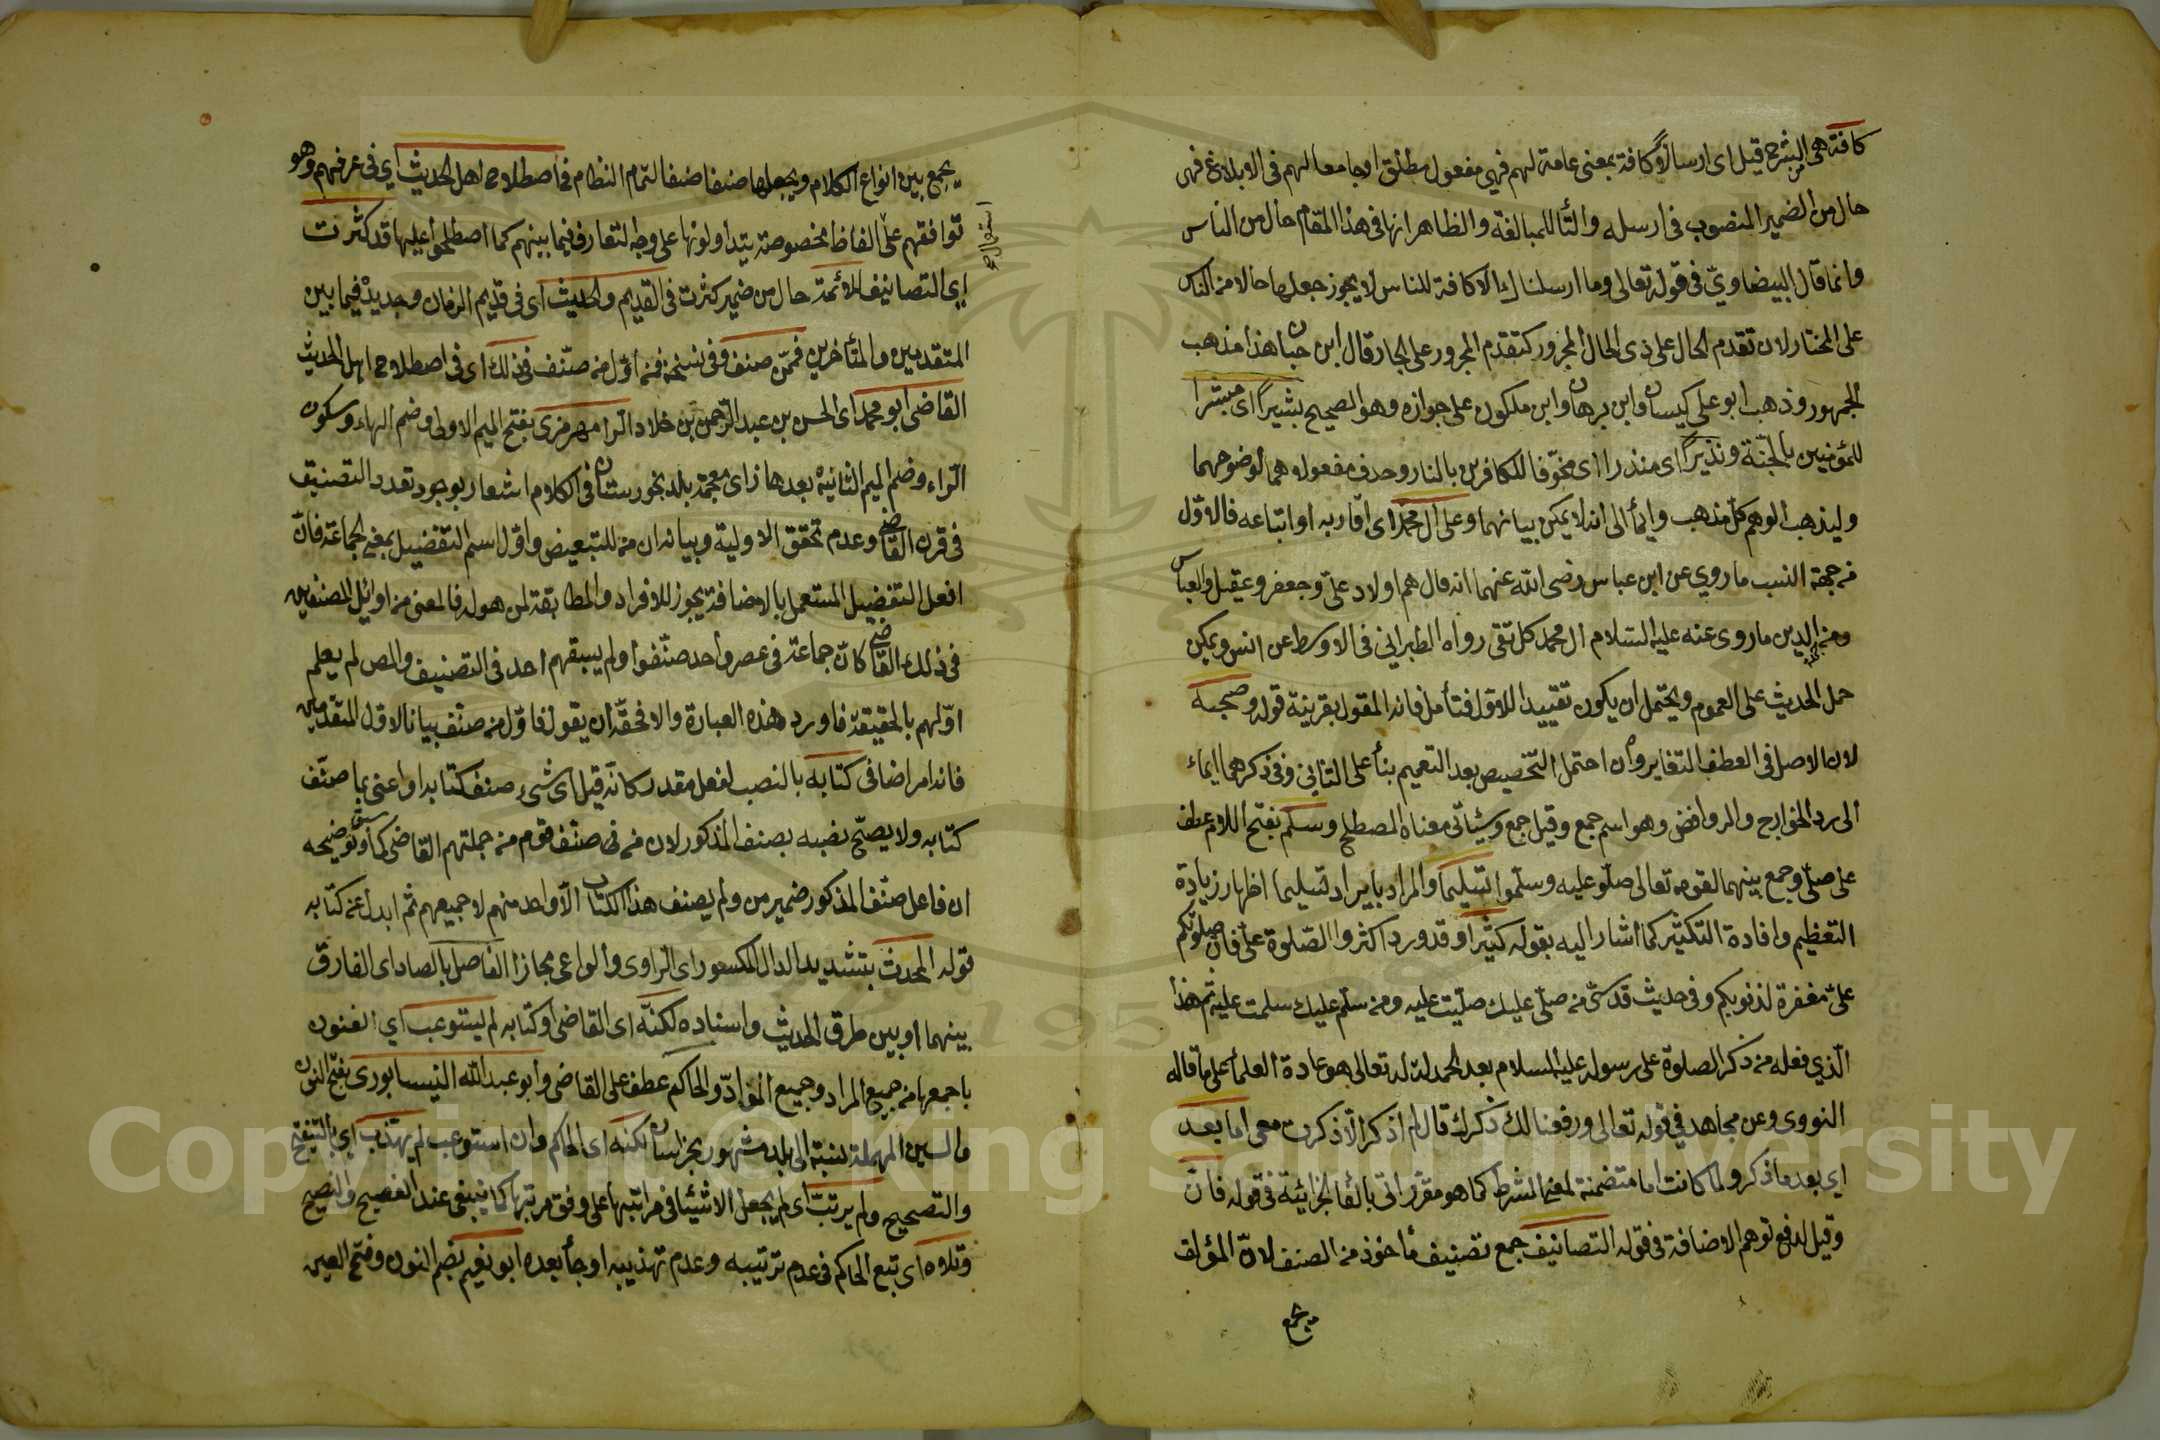 كافة هي الشرح قيل اى ارسالا وكافة بمعنى عامة لهم فهى مفعول مطلق او جامعا لهم فى الابلاغ فهى
حال من الضمير المنصوب فى ارسله والتا للمبالغة والظاهر انها فى هذا المقام حال من الناس
وانما قال البيضاوي فى قوله تعالى وما ارسلناك الا كافة للناس لا يجوز جعلها حالا من الناس
على المختار لان تقدم الحال على ذى الحال المجرور كتقدم المجرور على الجار قال ابن حبان هذا مذهب
الجمهور وذهب ابو على كيسان وابن برهان وابن ملكون على جوازه وهو الصحيح بشيرا اى مبشرا
للمؤمنين بالجنة ونذيرا اى منذرا اى مخوفا للكافرين بالنار وحذف مفعولاهما لوضوحهما
وليذهب الوهم كل مذهب وايمأ الى انه لا يمكن بيانهما وعلى ال محمد اى اقاربه او اتباعه فالاول
من جهة النسب ما روي عن ابن عباس رضى الله عنهما انه قال هم اولاد على وجعفر وعقيل والعباس
ومن الدين ما روى عنه عليه السلام ال محمد كل تقى رواه الطبرانى فى الاوسط عن انس ويمكن
حمل الحديث على العموم ويحتمل ان يكون تقييدا للاول فتأمل فانه المقول بقرينة قوله وصحبه
لان الاصل فى العطف التغاير وان احتمل التخصيص بعد التعميم بنأ على الثانى وفى ذكرهما ايماء
الى رد الخوارج والروافض وهو اسم جمع وقيل جمع وسيأتى معناه المصطلح وسلم بفتح اللام عطف
على صلى وجمع بينهما لقوله تعالى صلو عليه وسلموا تسليما والمراد بايراد تسليما اظهار زيادة
التعظيم وافادة التكثير كما اشار اليه بقوله كثيرا وقد ورد اكثروا الصلوة على فان صلوتكم
على مغفرة لذنوبكم وفى حديث قدسى من صلى عليك صليت عليه ومن سلم عليك سلمت عليه ثم هذا
الذي فعله من ذكر الصلوة على رسوله عليه السلام بعد الحمد لله له تعالى هو عادة العلمأ على ما قاله
النووى وعن مجاهد فى قوله تعالى ورفعنا لك ذكرك قال لم اذكر الا ذكرت معى اما بعد
اى بعد ما ذكر ولما كانت اما متضمنة لمعنى الشرط كما هو مقرر اتى بالفأ الجزائية فى قوله فان
وقيل لدفع توهم الاضافة فى قوله التصانيف جمع تصنيف مأخوذ من الصنف لان المؤلف
يجمع
يجمع بين انواع الكلام ويجعلها صنفا صنفا لتمام النظام فى اصطلاح اهل الحديث اي فى عرفهم وهو
توافقهم على الفاظ مخصوصة يتداولونها على وجه التعارف فيما بينهم كما اصطلحوا عليها قد كثرت
اى التصانيف للائمة حال من ضمير كثرت فى القديم والحديث اى فى قديم الزمان وجديده فيما بين
المتقدمين والمتأخرين فمن صنف وفى نسخة فمن اول من صنف فى ذلك اى فى اصطلاح اهل الحديث
القاضى ابو محمد اى الحسن بن عبد الرحمن بن خلاد الرامهرمزى بفتح الميم الاولى وضم الهاء وسكون
الراء وضم الميم الثانية بعدها زاى معجمة بلد بخورستان فى الكلام اشعار بوجود تعدد التصنيف
فى قرن القاضى وعدم تحقق الاولية وبيانه ان من للتبعيض واول اسم التفضيل بمعنى الجماعة فان
افعل التفضيل المستعمل بالاضافة يجوز للافراد والمطابقة لمن هو له فالمعنى من اوائل المصنفين
فى ذلك القاضى كان جماعة فى عصر واحد صنفوا ولم يسبقهم احد فى التصنيف والمص لم يعلم
اولهم بالحقيقة فاورد هذه العبارة والا فحقه ان يقول فاول من صنف بيانا لاول المتقدمين
فانه امر اضافى كتابه بالنصب لفعل مقدر كانه قيل اى شىء صنف كتابه او اعنى بما صنف
كتابه ولا يصح نصبه بصنف المذكور لان من فى صنف قوم من جملتهم القاضى كما سبق توضيحه
ان فاعل صنف المذكور ضمير من ولم يصنف هذا الكتاب الا واحد منهم لا جميعهم ثم ابدل عن كتابه
قوله المحدث بتشديد الدال المكسور اى الراوى والواعى مجازا الفاصل بالصاد اى الفارق
بينهما او بين طرق الحديث واسناده لكنه اى القاضى او كتابه لم يستوعب اي الفنون
باجمعها من جميع المراد وجميع المواد والحاكم عطف على القاضى وابو عبد الله النيسابورى بفتح النون
والسين المهملة نسبة الى بلد مشهور بخراسان لكنه اى الحاكم وان استوعب لم يهذب اى بالتنقيح
والتصحيح ولم يرتب اى لم يجعل الاشيئا فى مراتبها على وفق مرتبتها كما ينبغى عند الفصيح والنصيح
وتلاه اى تبع الحاكم فى عدم ترتيبه وعدم تهذيبه او جأ بعده ابو نعيم بضم النون وفتح العين